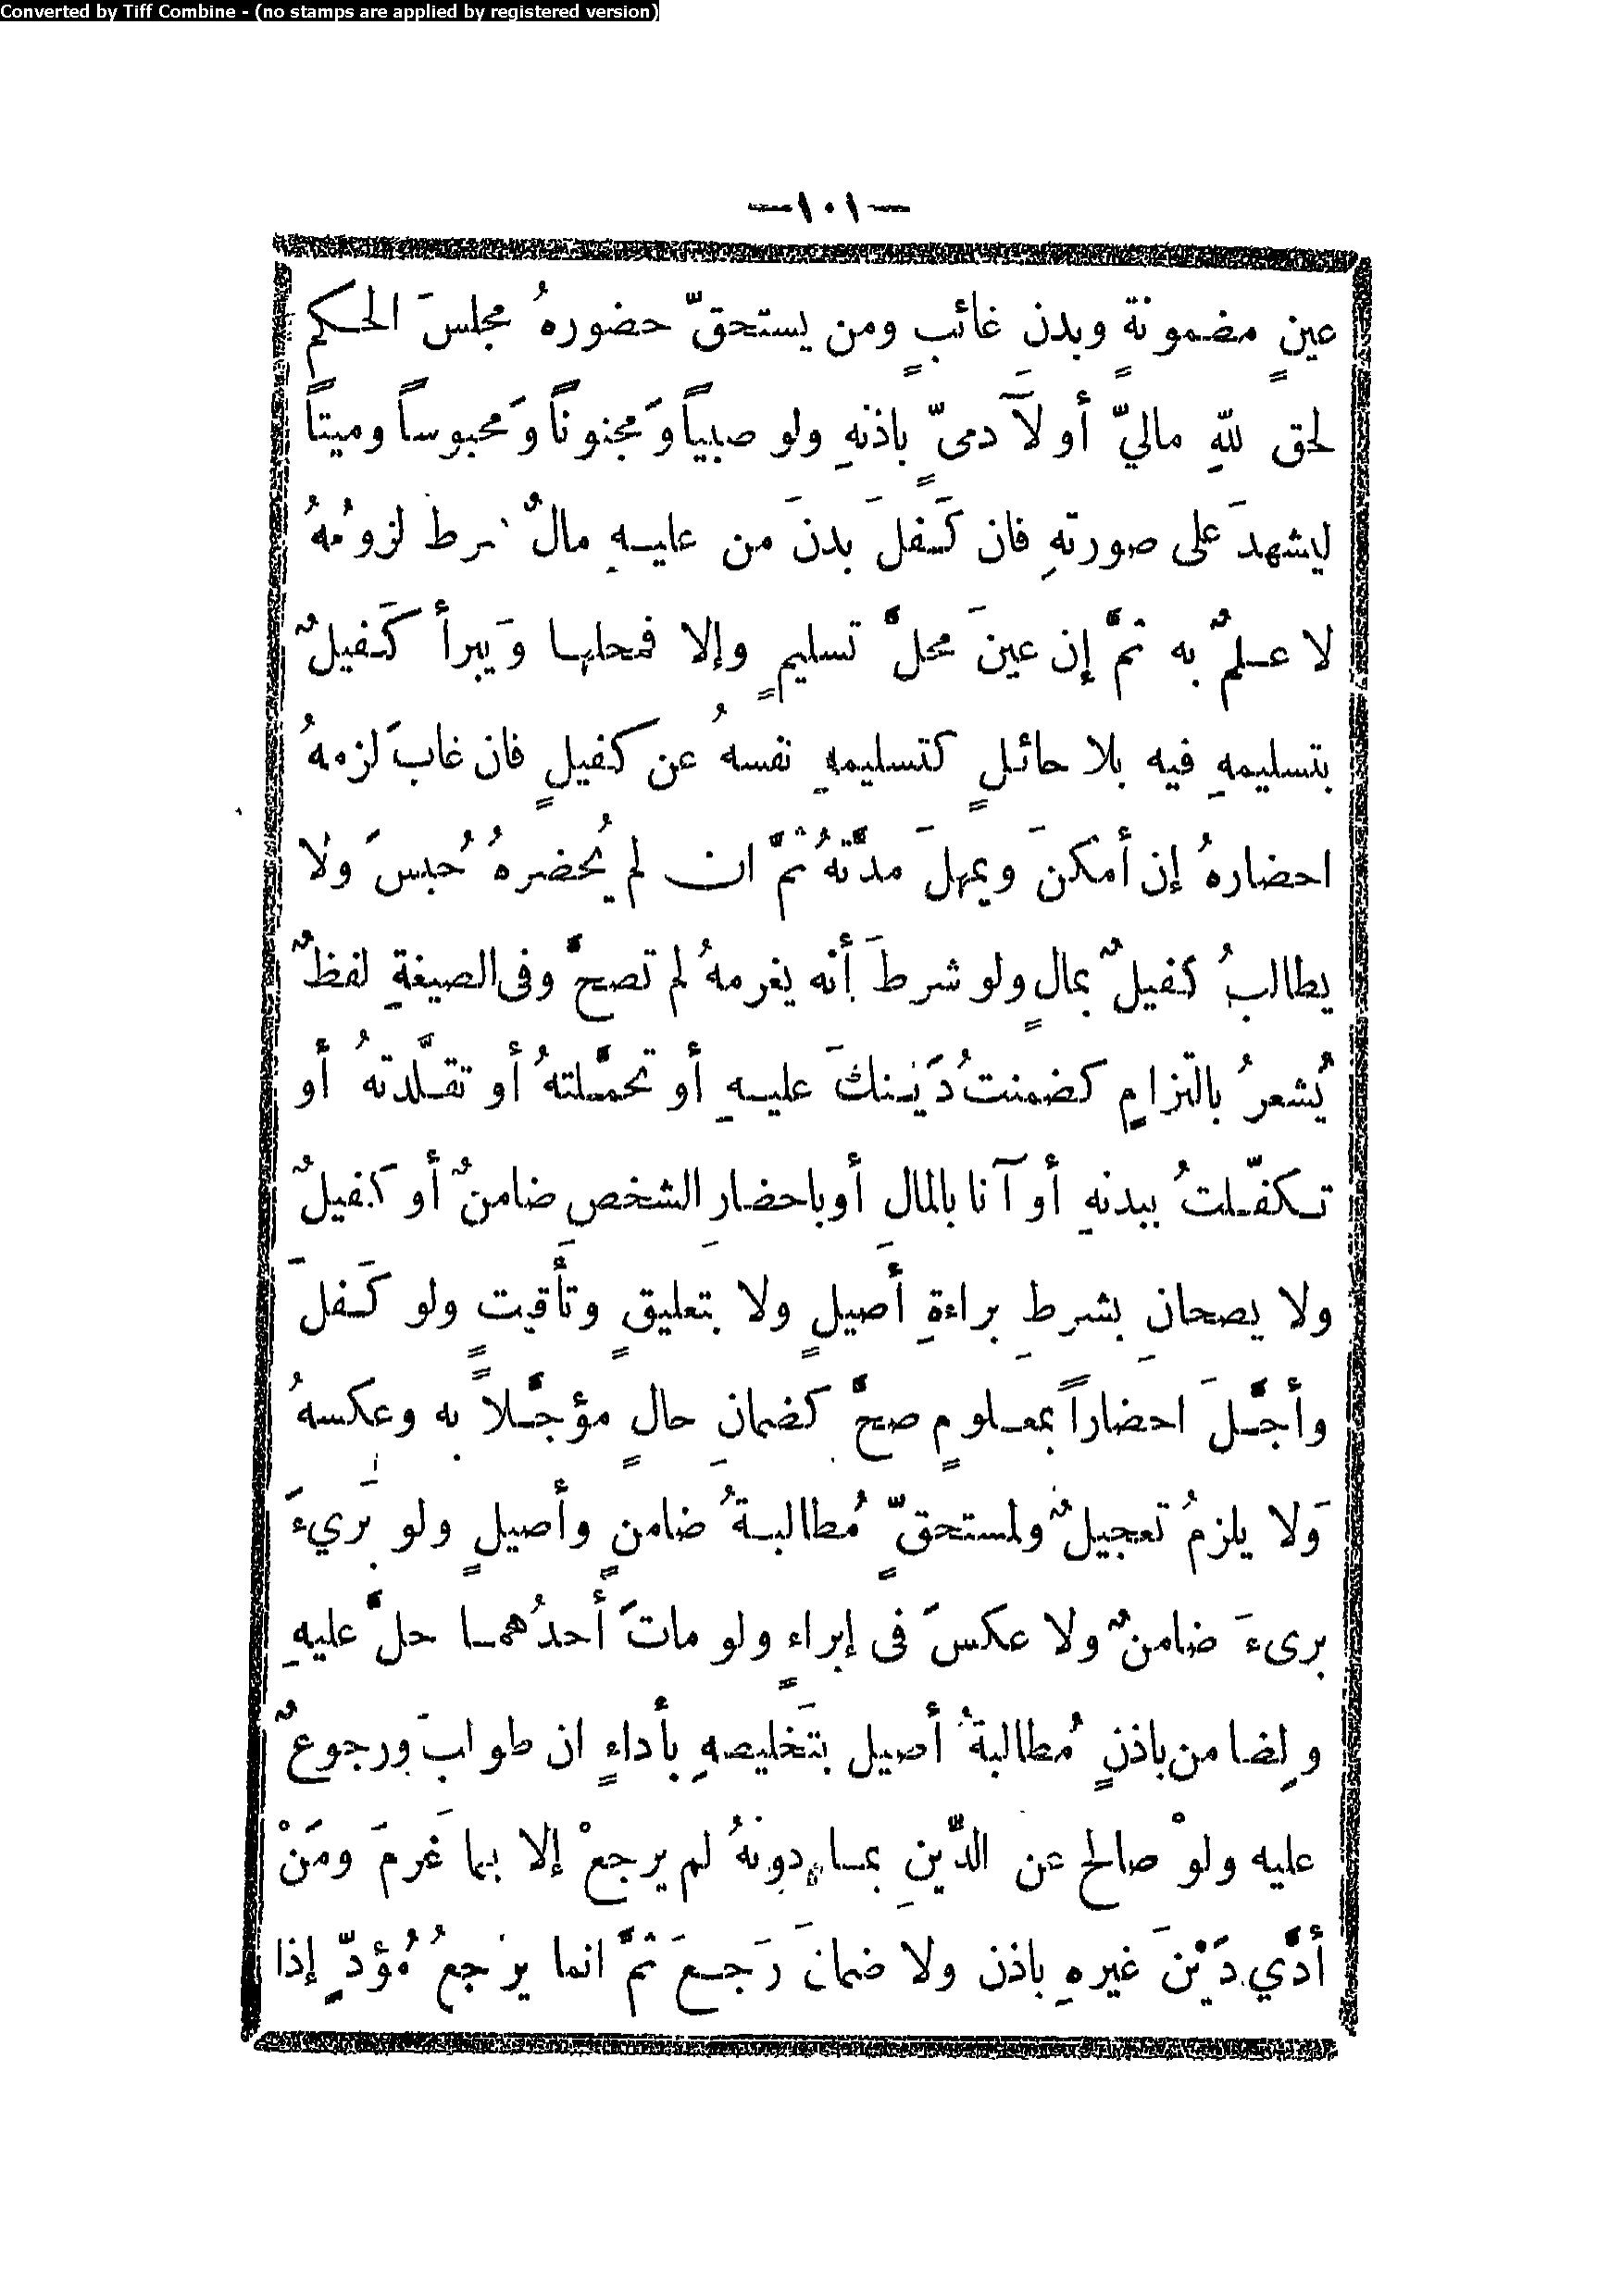 Converted by Tiff Combine - (no stamps are applied by registered version)
—١٠١—
عينٍ مضمونةٍ وبدنَ غائبٍ ومن يستحقّ حضورهُ مجلسَ الحكم
لحق للهِ ماليّ أو لآدمىّ ٍ باذنهِ ولو صبياً وَمجنوناً وَمحبوساً وميتاً
ليشهدَ على صورتهِ فان كَفلَ بدنَ من عليهِ مالٌ شرط لزومُهُ
لا علمٌ به ثمَّ إن عينَ محلَّ تسليمٍ وإلا فمحلها وَيبرأ كَفيلٌ
بتسليمهِ فيه بلا حائلٍ كتسليمهِ نفسهُ عن كفيلٍ فان غابَ لزمهُ
احضارهُ إن أمكنَ ويمهلَ مدَّتهُ ثمَّ ان لم يُحضرهُ حُبسَ ولا
يطالبُ كفيلٌ بمالٍ ولو شرطَ أنه يغرمهُ لم تصحَّ وفى الصيغةِ لفظٌ
يُشعرُ بالتزامٍ كضمنتُ دَينكَ عليهِ أو تحمَّلتهُ أو تقلَّدتهُ أو
تكفّلتُ ببدنهِ أو آنا بالمالِ أو باحضارِ الشخصِ ضامنٌ أو كفيلٌ
ولا يصحانِ بشرطِ براءةِ أصيلٍ ولا بتعليقٍ وتأقيتٍ ولو كَفلَ
وأجَّلَ احضاراً بمعلومٍ صحَّ كضمانِ حالٍ مؤجَّلاً به وعكسهُ
وَلا يلزمُ تعجيلٌ ولمستحقّ ٍ مُطالبةُ ضامنٍ وأصيلٍ ولو بَرِيءَ
برىءَ ضامنٌ ولا عكسَ فى إبراءٍ ولو ماتَ أحدُهما حلَّ عليهِ
ولِضامن باذنٍ مُطالبةُ أصيل بتَخليصهِ بأداءٍ ان طولبَ ورجوعٌ
عليه ولوْ صالح عن الدَّينِ بما دونَهُ لم يرجعْ إلا بما غَرمَ ومَنْ
أدَّي دَيْنَ غيرهِ باذن ولا ضمانَ رَجعَ ثمَّ انما يرجعُ مُؤدّ ٍ إذا